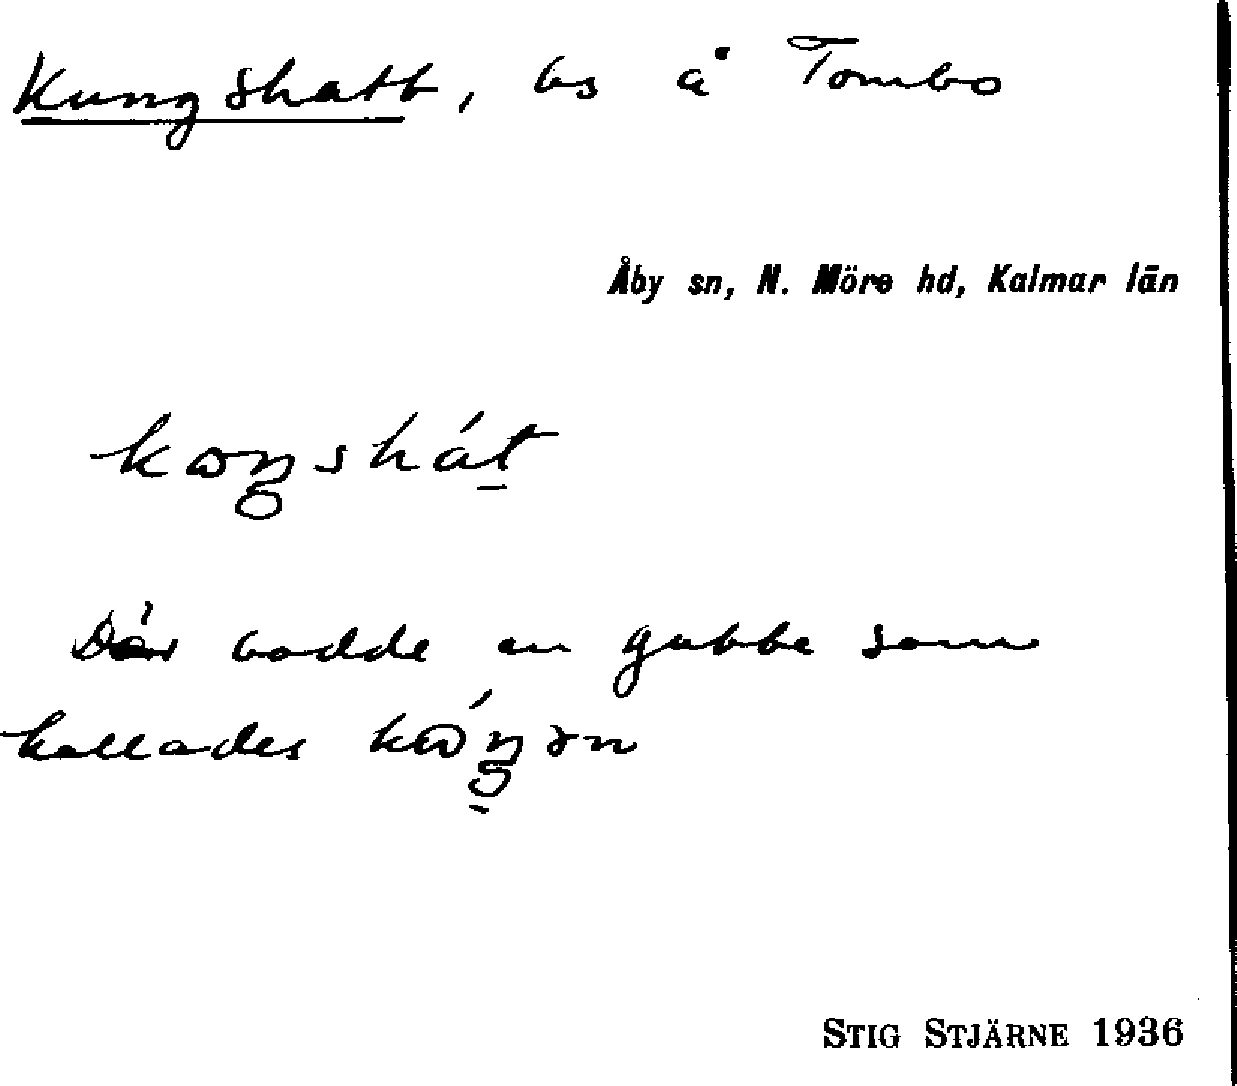 Kungshatt, bs å Tombo
Åby sn, N. Möre hd, Kalmar län
kωŋshát̠
Där bodde en gubbe som
kallades kώŋ̠ən
STIG STJÄRNE 1936